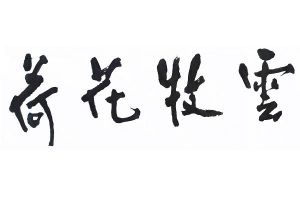 荷花牧雲